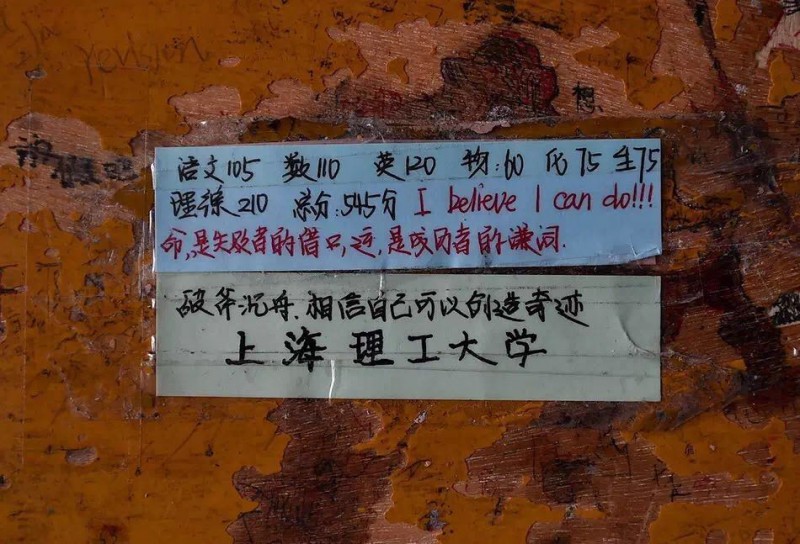 Yevision
想
语文105 数110 英120 物:60 化75 生75
理综210 总分:545分 I believe I can do!!!
命,是失败者的借口,运,是成功者的谦词.
破斧沉舟.相信自己可以创造奇迹
上海理工大学